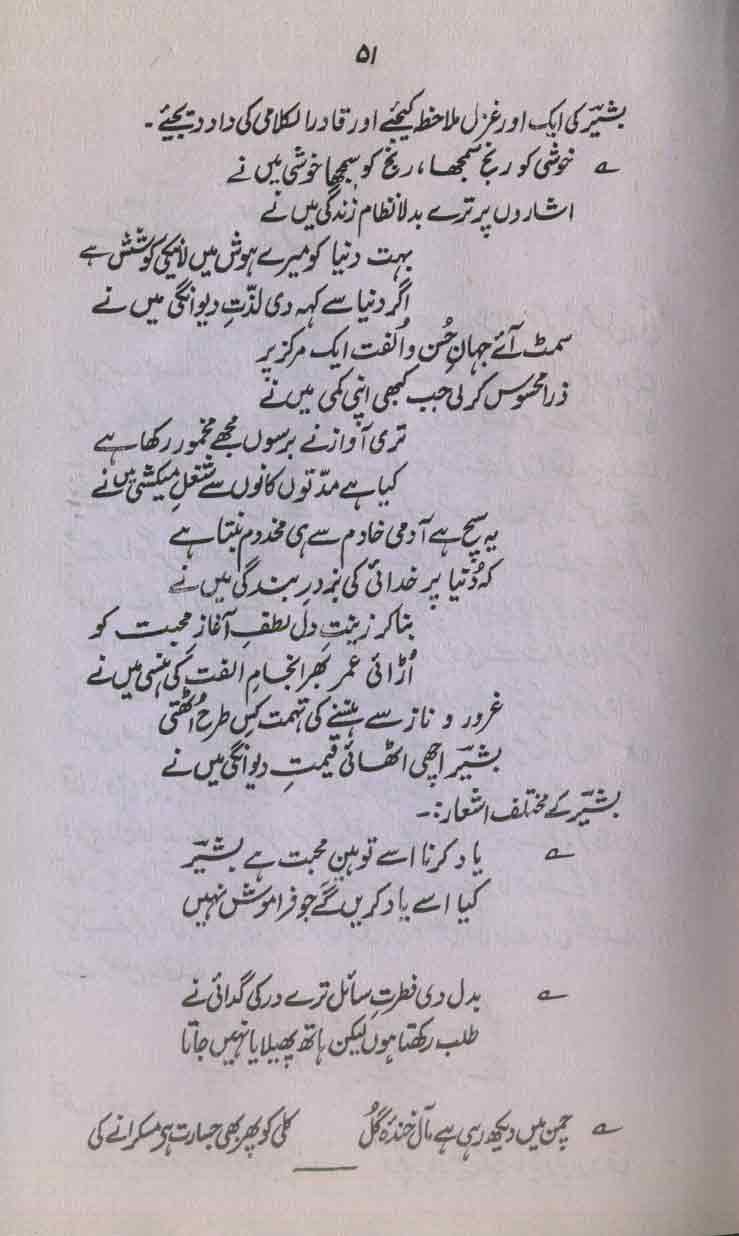 ۵۱
بشیرؔ کی ایک اور غزل ملاحظہ کیجئے اور قادر الکلامی کی داد دیجئے۔
؎ خوشی کو رنج سمجھا، رنج کو سمجھا خوشی میں نے
اشاروں پر ترے بدلا نظام زندگی میں نے
بہت دنیا کو میرے ہوش میں لانیکی کوشش ہے
اگر دنیا سے کہہ دی لذّتِ دیوانگی میں نے
سمٹ آئے جہانِ حُسن و اُلفت ایک مرکز پر
ذرا محسوس کر لی جب کبھی اپنی کمی میں نے
تری آواز نے برسوں مجھے مخمور رکھا ہے
کیا ہے مدّتوں کانوں سے شغلِ میکشی میں نے
یہ سچ ہے آدمی خادم سے ہی مخدوم بنتا ہے
کہ دُنیا پر خدائی کی بزورِ بندگی میں نے
بنا کر زینتِ دل لطفِ آغازِ محبت کو
اُڑائی عمر بھر انجامِ الفت کی ہنسی میں نے
غرور و ناز سے ہنسنے کی تہمت کس طرح اُٹھتی
بشیرؔ اچھی اٹھائی قیمتِ دیوانگی میں نے
بشیرؔ کے مختلف اشعار:۔
؎ یاد کرنا اسے توہینِ محبت ہے بشیرؔ
کیا اسے یاد کریں گے جو فراموش نہیں
؎ بدل دی فطرتِ سائل ترے در کی گدائی نے
طلب رکھتا ہوں لیکن ہاتھ پھیلایا نہیں جاتا
؎ چمن میں دیکھ رہی ہے مآلِ خندۂ گُل کلی کو پھر بھی جسارت ہو مسکرانے کی